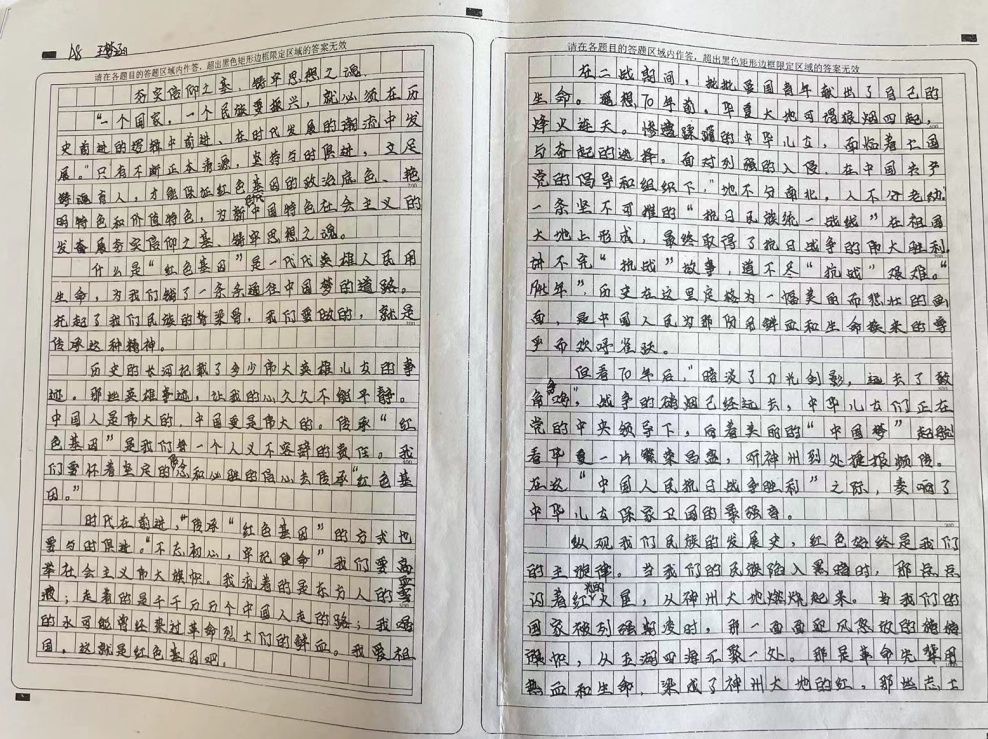 A8 王梦涵
请在各题目的答题区域内作答，超出黑色矩形边框限定区域的答案无效
夯实信仰之基、铸牢思想之魂.
“一个国家，一个民族要振兴，就必须在历
史前进的逻辑中前进、在时代发展的潮流中发
展。”只有不断正本清源，坚持与时俱进，立足
铸魂育人，才能保证红色基因的政治底色、鲜
明特色和价值特色，为新时代中国特色社会主义的
发奋展夯实信仰之基、铸牢思想之魂。
什么是“红色基因”是一代代英雄人民用
生命，为我们铺了一条条通往中国梦的道路。
托起了我们民族的脊梁骨，我们要做的，就是
传承这种精神。
历史的长河记载了多少伟大英雄儿女的事
迹。那些英雄事迹，让我的心久久不能平静。
中国人是伟大的，中国更是伟大的。传承“红
色基因”是我们每一个人义不容辞的责任。我
们要怀着坚定的信念和必胜的信心去传承“红色基
因。”
时代在前进，“传承“红色基因”的方式也
要与时俱进。“不忘初心，牢记使命”我们要高
举社会主义伟大旗帜，我流着的是东方人的血
液；走着的是千千万万个中国人走的路；我喝
的水可能曾经来过革命烈士们的鲜血。我爱祖
国，这就是红色基因吧.
请在各题目的答题区域内作答，超出黑色矩形边框限定区域的答案无效
在二战期间，批批爱国青年献出了自己的
生命。遥想70年前，华夏大地可谓狼烟四起，
烽火连天。惨遭蹂躏的中华儿女，面临着亡国
与奋起的选择。面对列强的入侵，在中国共产
党的倡导和组织下，“地不分南北，人不分老幼”
一条坚不可摧的“抗日民族统一战线”在祖国
大地上形成，最终取得了抗日战争的伟大胜利.
讲不完“抗战”故事，道不尽“抗战”艰难。“
胜年”，历史在这里定格为一幅美丽而悲壮的画
面，是中国人民为那份用鲜血和生命换来的尊
严而欢呼雀跃。
但看70年后，“暗淡了刀光剑影，远去了鼓
角争鸣”，战争的硝烟已经远去，中华儿女们正在
党的中央领导下，向着美丽的“中国梦”起跑
看华夏一片繁荣昌盛，听神州到处捷报频传。
在这“中国人民抗日战争胜利”之际，奏响了
中华儿女保家卫国的最强音。
纵观我们民族的发展史，红色始终是我们
的主旋律。当我们的民族陷入黑暗时，那点点
闪着红光的火星，从神州大地燃烧起来。当我们的
国家被列强
时，那一面面迎风怒放的
旗帜，从五湖四海汇聚一处。那是革命先辈用
热血和生命，染成了神州大地的红，那些志士